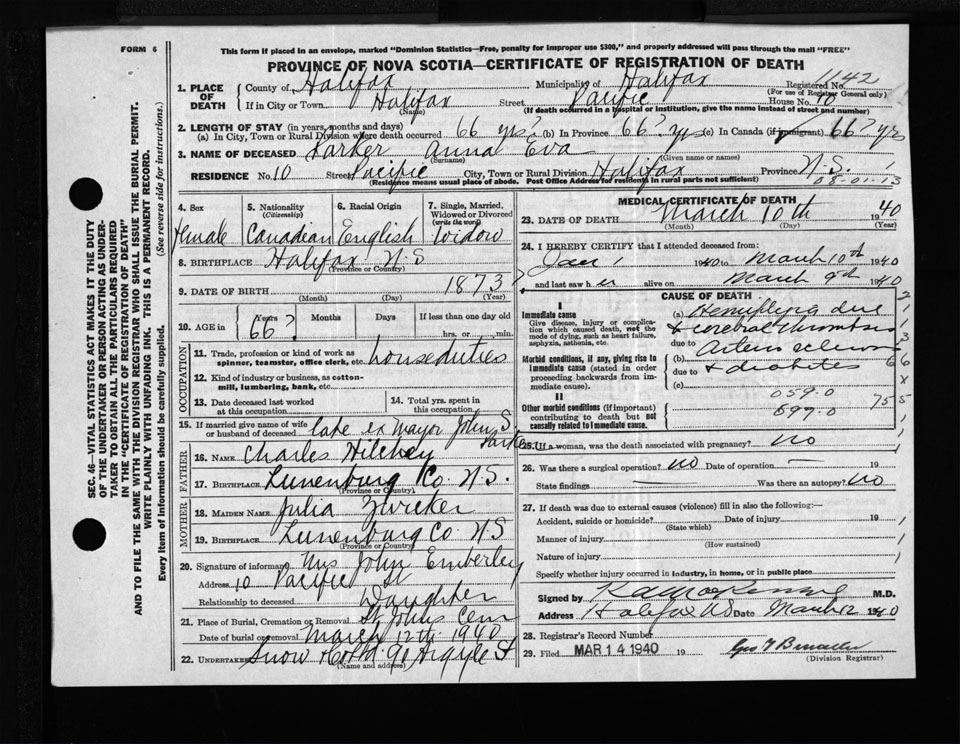 FORM 6
This form if placed in an envelope, marked "Dominion Statistics—Free, penalty for improper use $300," and properly addressed will pass through the mail "FREE"
PROVINCE OF NOVA SCOTIA—CERTIFICATE OF REGISTRATION OF DEATH
1. PLACE OF DEATH County of Halifax Municipality of Halifax Registered No. 1142
(For use of Registrar General only)
If in City or Town Halifax Street Pacific House No. 10
(Name) (If death occurred in a hospital or institution, give the name instead of street and number)
2. LENGTH OF STAY (in years, months and days)
(a) In City, Town or Rural Division where death occurred 66 yrs? (b) In Province 66? yrs (c) In Canada (if immigrant) 66? yrs
3. NAME OF DECEASED Parker Anna Eva
(Surname) (Given name or names)
RESIDENCE No. 10 Street Pacific City, Town or Rural Division Halifax Province N.S.
(Residence means usual place of abode. Post Office Address for residents in rural parts not sufficient) 08-01-13
4. Sex Female
5. Nationality (Citizenship) Canadian
6. Racial Origin English
7. Single, Married, Widowed or Divorced (write the word) Widow
8. BIRTHPLACE Halifax N S
(Province or Country)
9. DATE OF BIRTH 1873?
(Month) (Day) (Year)
10. AGE in Years 66? Months Days If less than one day old
hrs. or min.
OCCUPATION
11. Trade, profession or kind of work as spinner, teamster, office clerk, etc. houseduties
12. Kind of industry or business, as cotton-mill, lumbering, bank, etc.
13. Date deceased last worked at this occupation
14. Total yrs. spent in this occupation
15. If married give name of wife or husband of deceased late ex Mayor John S. Parker
FATHER
16. NAME Charles Hilchey
17. BIRTHPLACE Lunenburg Co. N.S.
(Province or Country)
MOTHER
18. MAIDEN NAME Julia Zwicker
19. BIRTHPLACE Lunenburg Co N.S
(Province or Country)
20. Signature of informant Mrs John Emberley
Address 10 Pacific St
Relationship to deceased Daughter
21. Place of Burial, Cremation or Removal St Johns Cem
Date of burial or removal March 12th 1940
22. Undertaker Snow & Co Ltd 90 Argyle St
(Name and address)
MEDICAL CERTIFICATE OF DEATH
23. DATE OF DEATH March 10th 1940
(Month) (Day) (Year)
24. I HEREBY CERTIFY that I attended deceased from:
Jan 1 1940 to March 10th 1940
and last saw her alive on March 9th 1940
CAUSE OF DEATH
I
Immediate cause
Give disease, injury or complication which caused death, not the mode of dying, such as heart failure, asphyxia, asthenia, etc.
(a) Hemiplegia due
to cerebral thrombosis
due to
Morbid conditions, if any, giving rise to immediate cause (stated in order proceeding backwards from immediate cause).
(b)
due to & diabetes
(c)
II
Other morbid conditions (if important) contributing to death but not causally related to immediate cause.
059.0
899.0
25. If a woman, was the death associated with pregnancy? no
26. Was there a surgical operation? no Date of operation — 19
State findings — Was there an autopsy? no
27. If death was due to external causes (violence) fill in also the following:—
Accident, suicide or homicide? Date of injury 19
(State which)
Manner of injury
(How sustained)
Nature of injury
Specify whether injury occurred in industry, in home, or in public place
Signed by M.D.
Address Halifax NS Date March 12 1940
28. Registrar's Record Number
29. Filed MAR 14 1940 19
(Division Registrar)
SEC. 46—VITAL STATISTICS ACT MAKES IT THE DUTY
OF THE UNDERTAKER OR PERSON ACTING AS UNDER-
TAKER TO OBTAIN ALL THE PARTICULARS REQUIRED
IN THE "CERTIFICATE OF REGISTRATION OF DEATH"
AND TO FILE THE SAME WITH THE DIVISION REGISTRAR WHO SHALL ISSUE THE BURIAL PERMIT.
WRITE PLAINLY WITH UNFADING INK. THIS IS A PERMANENT RECORD.
Every item of information should be carefully supplied. (See reverse side for instructions.)